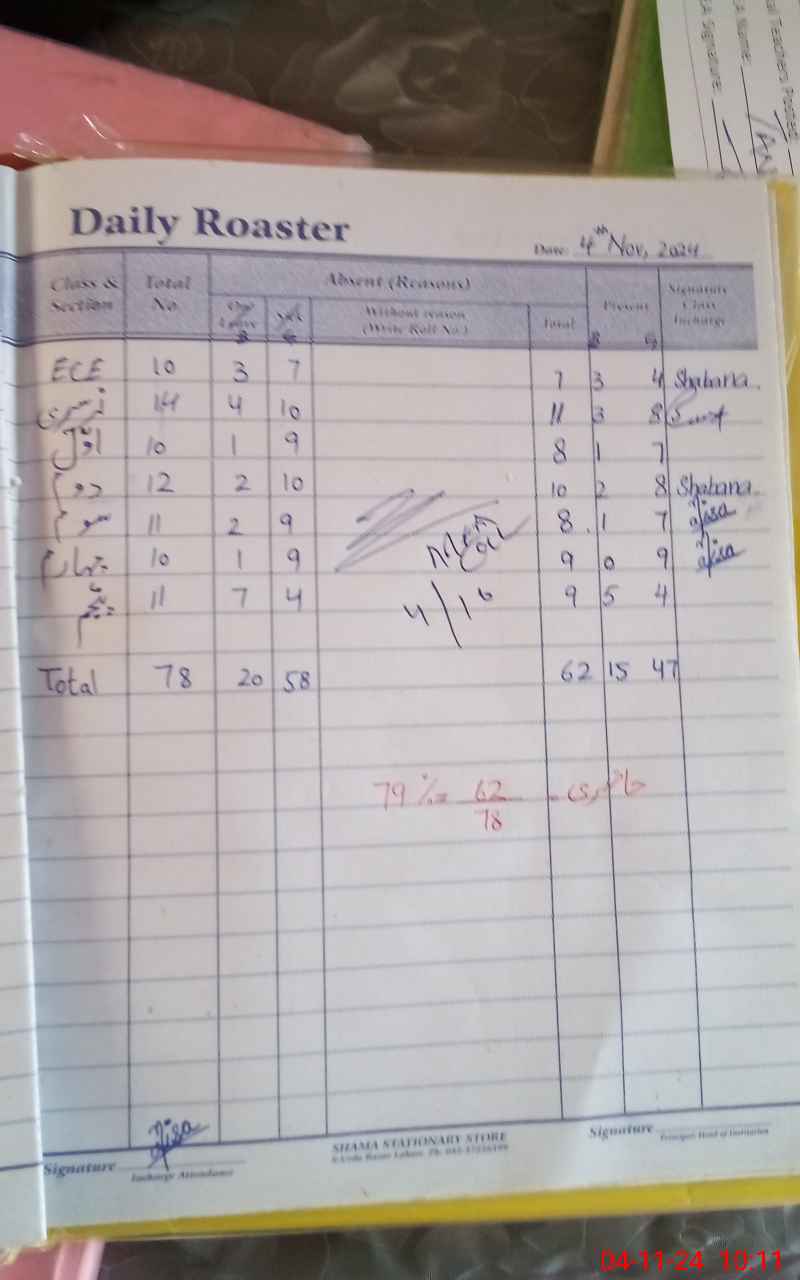 Teachers Posted:
A Name:
A Signature:
Daily Roaster
Date: 4th Nov, 2024
Class & Section Total No. Absent (Reasons) Present Signature Class Incharge
On Leave Sick Without reason (Write Roll No.) Total
B G B G
ECE 10 3 7 7 3 4 Shabana
نرسری 14 4 10 11 3 8
اول 10 1 9 8 1 7
دوم 12 2 10 10 2 8 Shabana
سوم 11 2 9 8 1 7
چہارم 10 1 9 9 0 9
پنجم 11 7 4 9 5 4
Total 78 20 58 62 15 47
79 % = 62/78 حاضری
Signature
Incharge Attendance
SHAMA STATIONARY STORE
Signature
Principal/Head of Institution
04-11-24 10:11